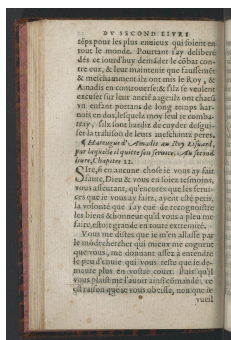 DV SECOND LIVRE
tẽps pour les plus ennieux qui soient en
tout le monde. Pourtant i'ay deliberé
dés ce iourd'huy demãder le cõbat con-
tre eux, & leur maintenir que faussemẽt
& meschamment ilz ont mis le Roy, &
Amadis en controuerse: & s'ilz se veulent
excuser sur leur anciẽ aage: ilz ont chacũ
vn enfant portans de long temps har-
nois en dos, lesquelz moy seul ie comba-
tray, s'ilz sont hardiz de cuyder desgui-
ser la trahison de leurs meschantz peres.
¶ Harengue d'Amadis au Roy Lisuard,
par laquelle il quite son seruice. Au second
liure, Chapitre 21.
SIre, si en aucune chose ie vous ay fait
faute, Dieu & vous en soiez tesmoins,
vous asseurant, qu'encores que les serui-
ces que ie vous ay faitz, ayent esté petis,
la volonté que i'ay euë de recongnoistre
les biens & honneur qu'il vous a pleu me
faire, estoit grande en toute extremité.
Vous me distes que ie m'en allasse par
le mõde chercher qui mieux me cogneut
que vous, me donnant assez à entendre
le peu d'enuie qui vous reste que ie de-
meure plus en vostre court. Puis qu'il
vous plaist me l'auoir ainsi cõmãdé, ce
est raison que ie vous obeisse, non que ie
vueil